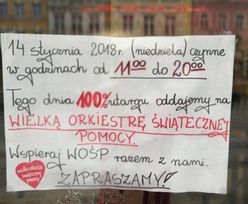 14 stycznia 2018r. (niedziela) czynne
w godzinach od 11⁰⁰ do 20⁰⁰
Tego dnia 100% utargu oddajemy na
WIELKĄ ORKIESTRĘ ŚWIĄTECZNEJ
POMOCY.
Wspieraj WOŚP razem z nami.
ZAPRASZAMY!
wielka orkiestra
świątecznej
pomocy